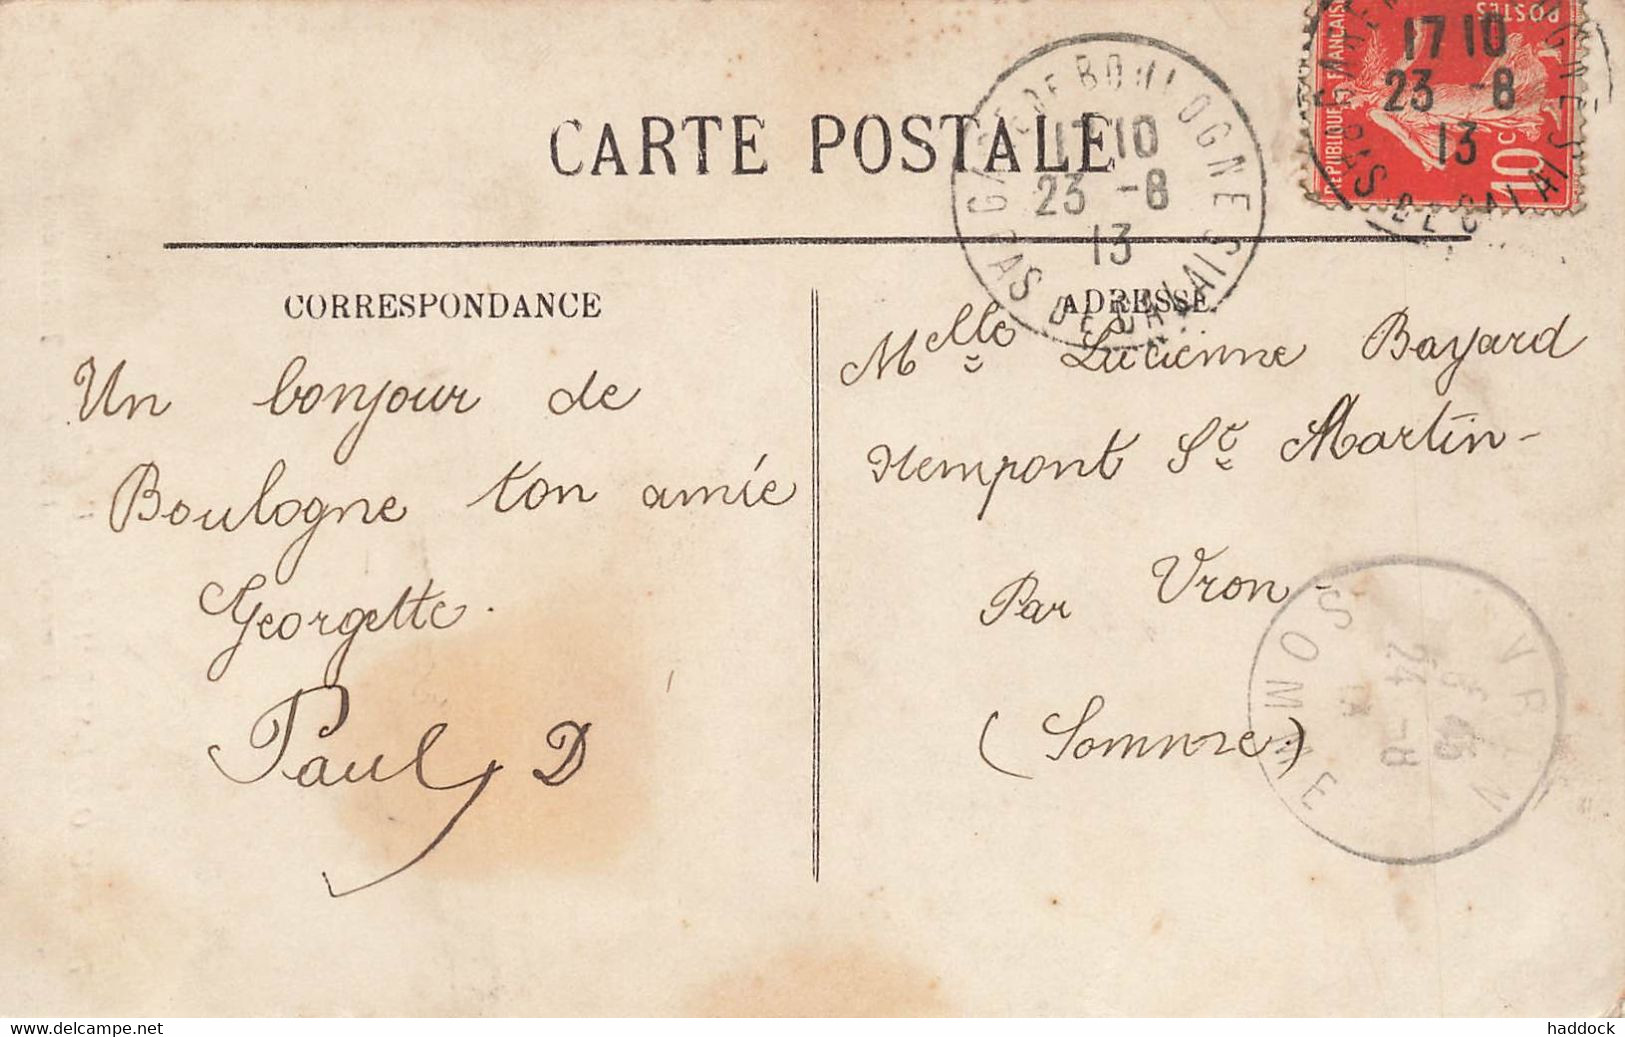 CARTE POSTALE
GARE DE BOULOGNE
17 10
23 -8
13
PAS DE CALAIS
POSTES
REPUBLIQUE FRANÇAISE
10c
17 10
23 -8
13
PAS DE CALAIS
CORRESPONDANCE
Un bonjour de
Boulogne ton amie
Georgette.
Paul D
ADRESSE
Melle Lucienne Bayard
Nempont St Martin-
Par Vron-
(Somme)
VRON
24 -8
SOMME
delcampe.net
haddock